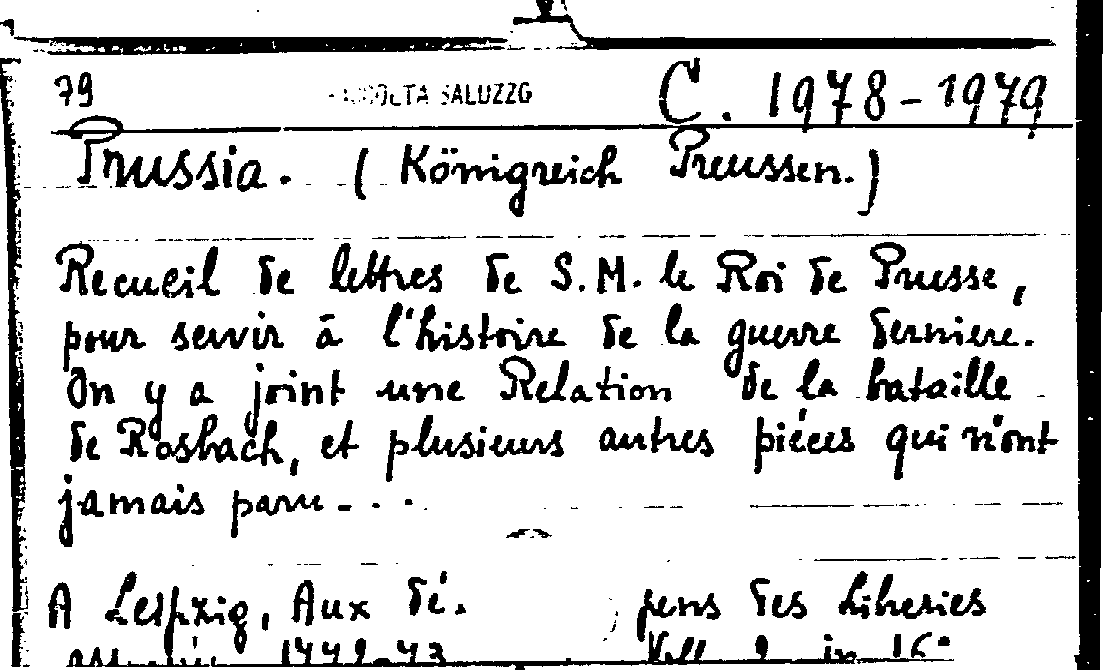 79 RACCOLTA SALUZZO C. 1978-1979
Prussia. (Königreich Preussen.)
Recueil de lettres de S.M. le Roi de Prusse,
pour servir à l'histoire de la guerre derniere.
On y a joint une Relation de la bataille
de Rosbach, et plusieurs autres piéces qui n'ont
jamais paru...
A Leipzig, Aux dé. pens des Libraries
Voll. 2 in 16°